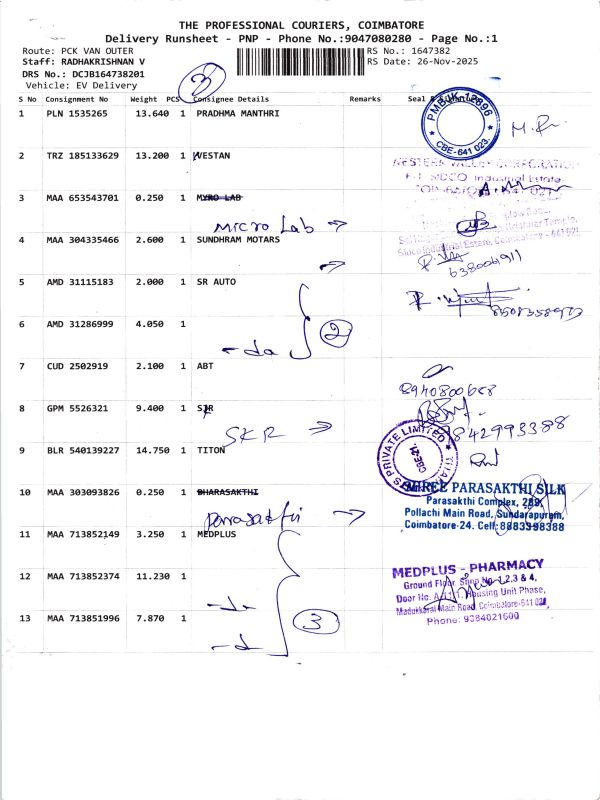 THE PROFESSIONAL COURIERS, COIMBATORE
Delivery Runsheet - PNP - Phone No.:9047080280 - Page No.:1
Route: PCK VAN OUTER
RS No.: 1647382
Staff: RADHAKRISHNAN V
RS Date: 26-Nov-2025
DRS No.: DCJB164738201
Vehicle: EV Delivery
3
S No Consignment No Weight PCS Consignee Details Remarks Seal &
1 PLN 1535265 13.640 1 PRADHMA MANTHRI
PMBJK-12896
CBE-641 023.
2 TRZ 185133629 13.200 1 WESTAN
WESTERN VALLEY CORPORATION
Industrial Estate
3 MAA 653543701 0.250 1 MYRO LAB
Micro Lab
4 MAA 304335466 2.600 1 SUNDHRAM MOTARS
Sidco Industrial Estate, Coimbatore - 641 021
638006911
5 AMD 31115183 2.000 1 SR AUTO
6 AMD 31286999 4.050 1
- da
2
7 CUD 2502919 2.100 1 ABT
8940800668
8 GPM 5526321 9.400 1 SJR
SKR
9842993388
9 BLR 540139227 14.750 1 TITON
PRIVATE LIMITED
CBE-21.
10 MAA 303093826 0.250 1 BHARASAKTHI
Parrasakthi
SHREE PARASAKTHI SILK
Parasakthi Complex, 289,
Pollachi Main Road, Sundarapuram,
Coimbatore-24. Cell: 8883398388
11 MAA 713852149 3.250 1 MEDPLUS
12 MAA 713852374 11.230 1
MEDPLUS - PHARMACY
Ground Floor Shop No-1,2,3 & 4,
Door No. Housing Unit Phase,
Madukkarai Main Road, Coimbatore-641 021
Phone: 9384021600
13 MAA 713851996 7.870 1
3